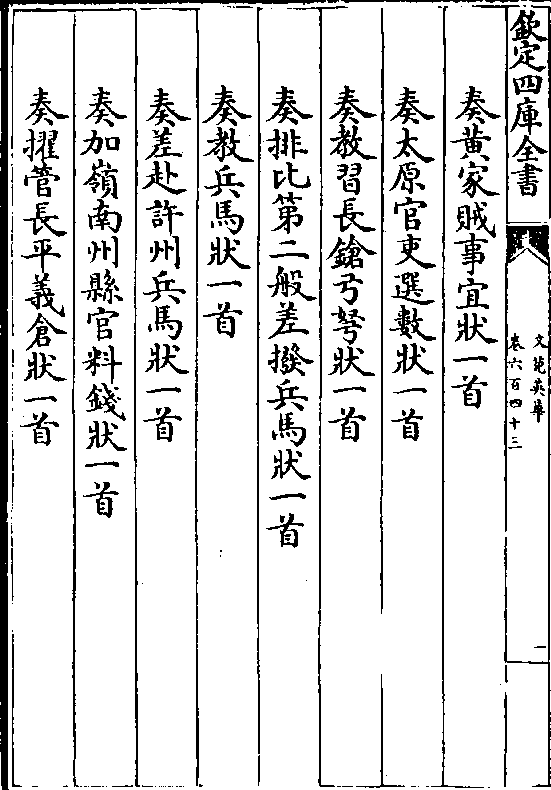 欽定四庫全書
文苑英華
卷六百四十三
一
奏黃家賊事宜狀一首
奏太原官吏選數狀一首
奏教習長鎗弓弩狀一首
奏排比第二般差撥兵馬狀一首
奏教兵馬狀一首
奏差赴許州兵馬狀一首
奏加嶺南州縣官料錢狀一首
奏擢管長平義倉狀一首